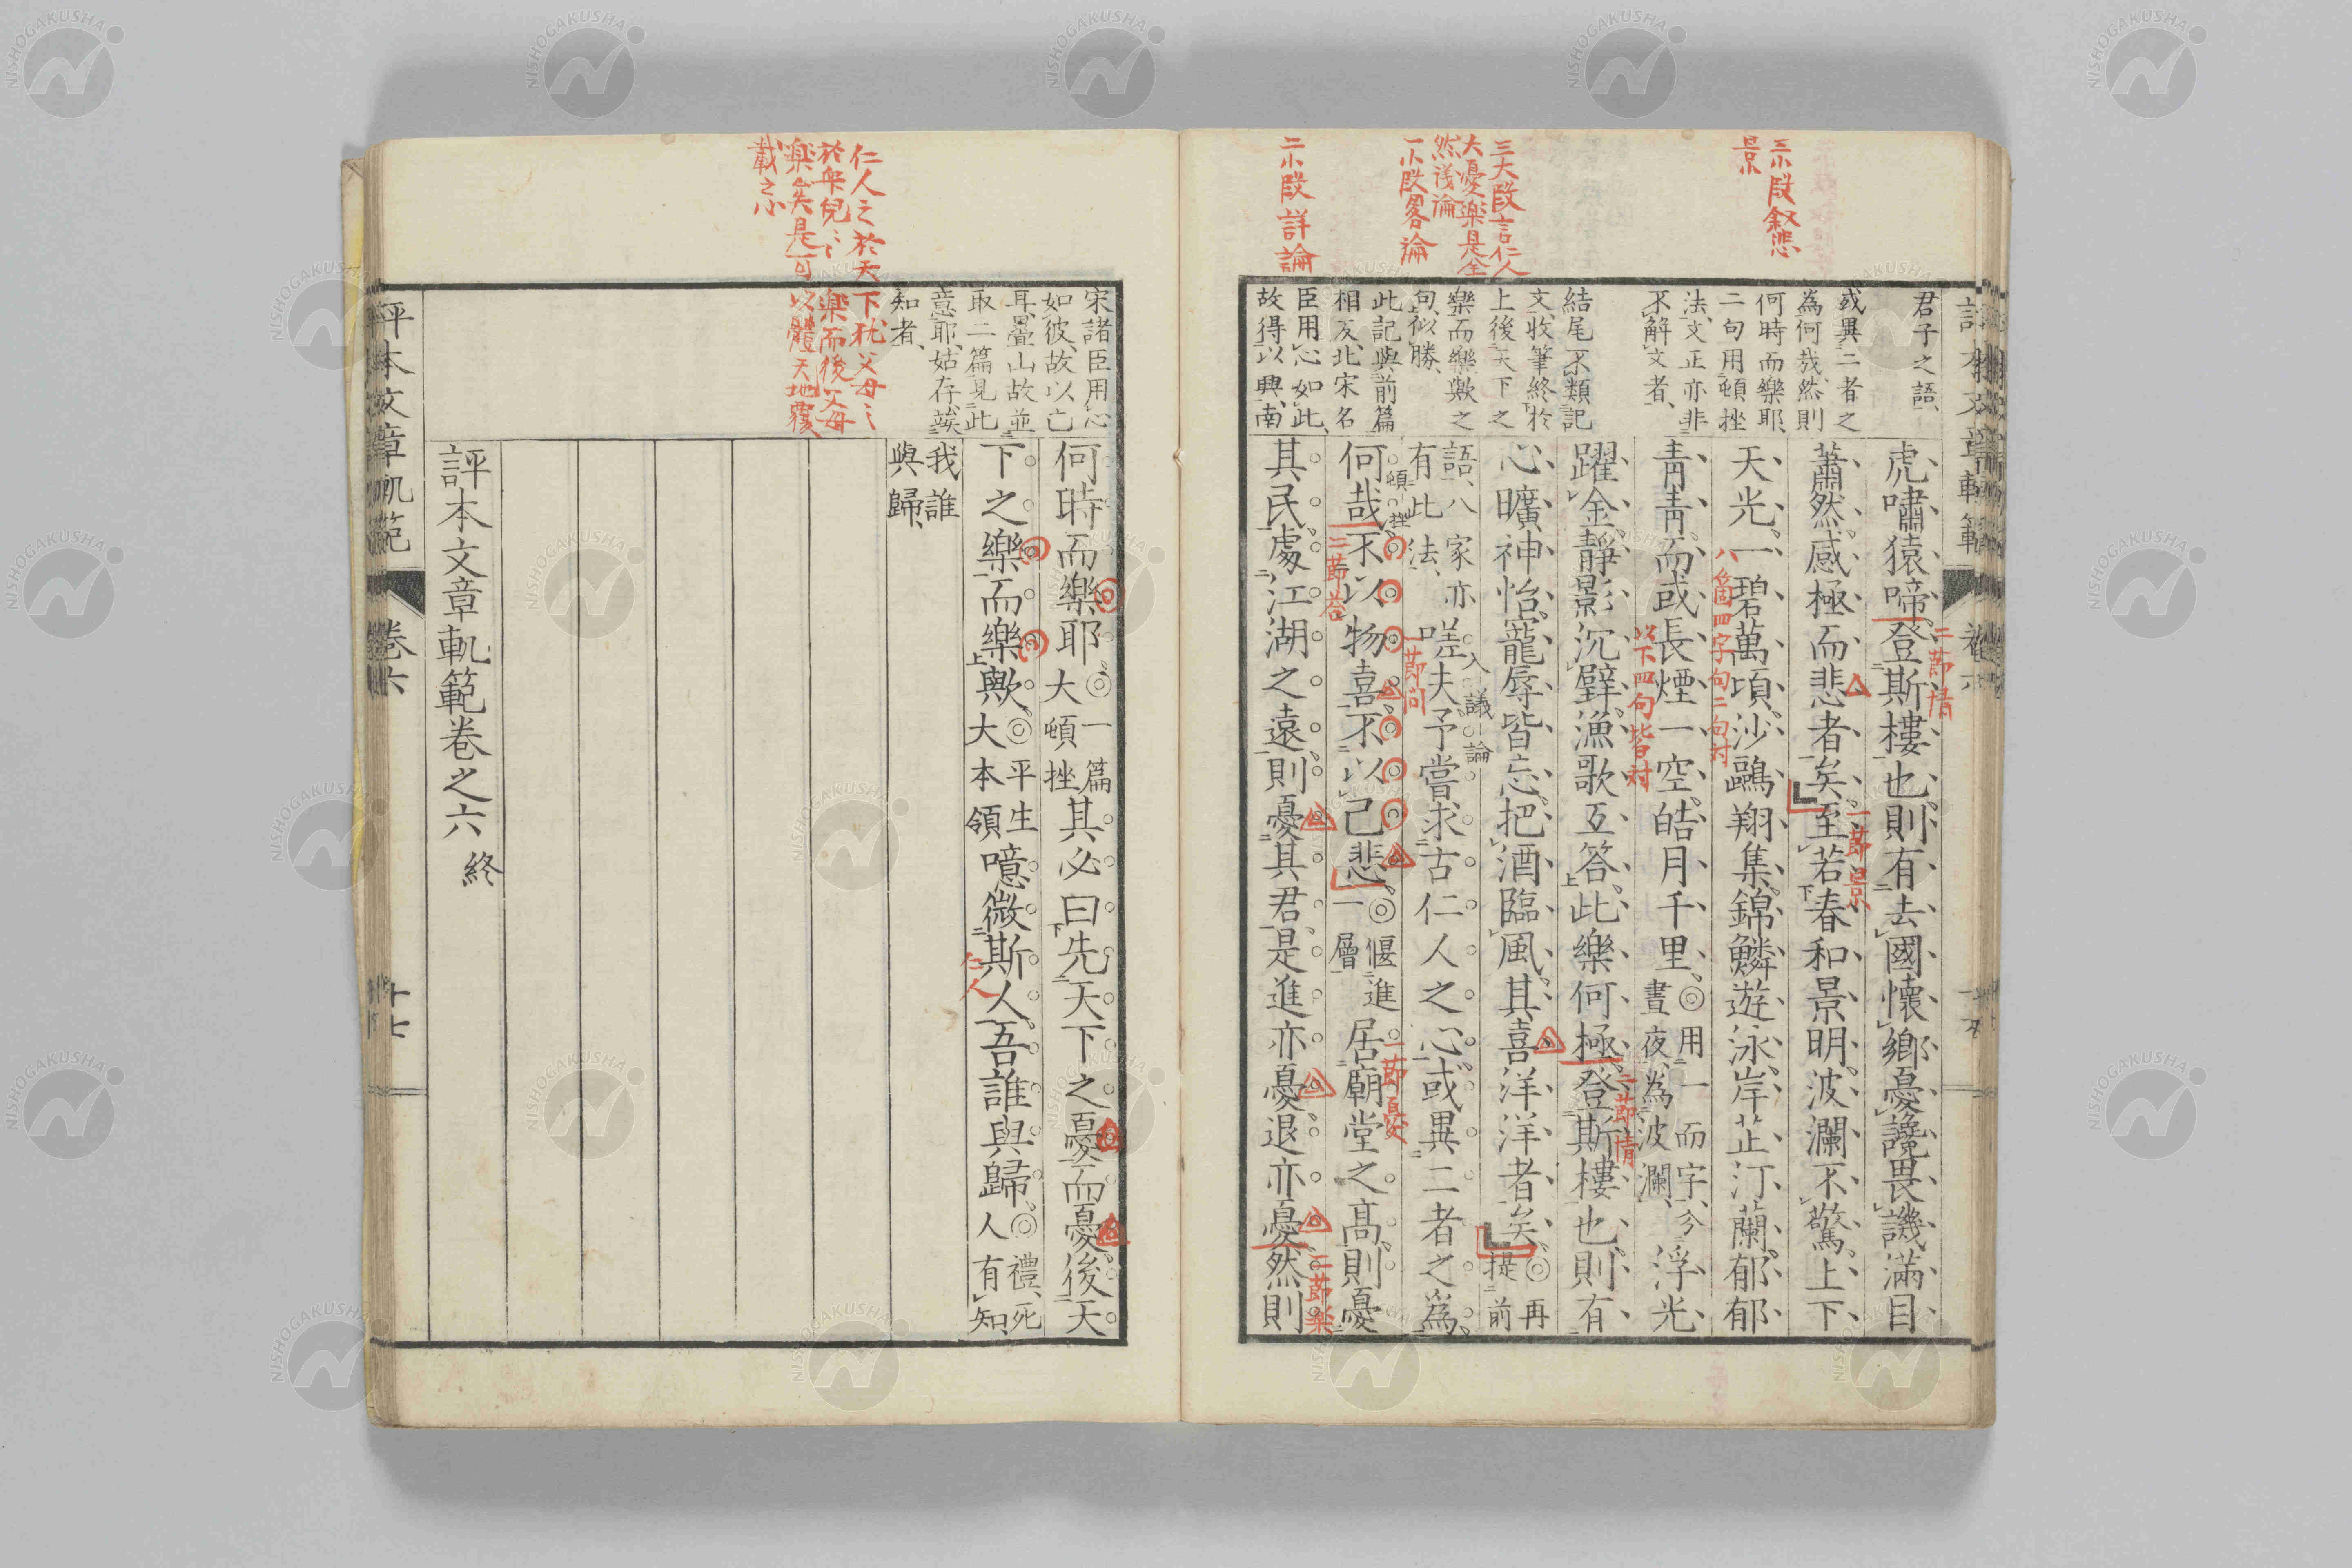 三小段叙悲
景
三大段言仁人
大憂楽是全
然議論
一小段畧論
二小段詳論
君子之語、
或異二者之
為何哉、然則
何時而樂耶、
二句用頓挫
法、文正亦非
不解文者、
結尾不類記
文、收筆終於
上後天下之
樂而樂歟之
句、似勝、
此記與前篇
相反、北宋名
臣用心如此、
故得以興、南
虎嘯猿啼、登斯樓也、則有去國懷鄉、憂讒畏譏、滿目
蕭然、感極而悲者矣、至若春和景明、波瀾不驚、上下
天光、一碧萬頃、沙鷗翔集、錦鱗遊泳、岸芷汀蘭、郁郁
青青、而或長煙一空、皓月千里、◎用一而字、今
晝夜為波瀾、
浮光
躍金、靜影沉璧、漁歌互答、此樂何極、登斯樓也、則有
心曠神怡、寵辱皆忘、把酒臨風、其喜洋洋者矣、◎再
提前
語、八家亦
有此法、
嗟夫、予嘗求古仁人之心、或異二者之為、
入議論
何哉、不以物喜、不以己悲、◎偃進
一層
居廟堂之高、則憂
頓挫
其民、處江湖之遠、則憂其君、是進亦憂、退亦憂、然則
二節情
一節景
八箇四字句二句対
以下四句皆対
二節情
一節问
二節答
一節憂
二節楽
評本文章軌範
仁人之於天下猶父母之
於衆兒、、楽而後父母
楽矣是可以體天地覆
載之心
宋諸臣用心
如彼、故以亡
耳、疊山故並
取二篇、見此
意耶、姑存、竢
知者、
何時而樂耶、◎一篇
大頓挫
其必曰、先天下之憂而憂、後天
下之樂而樂歟、◎平生
大本領
噫、微斯人、吾誰與歸、◎禮、死
人有知、
仁人
我誰
與歸、
評本文章軌範卷之六 終
評本文章軌範 卷六 十七